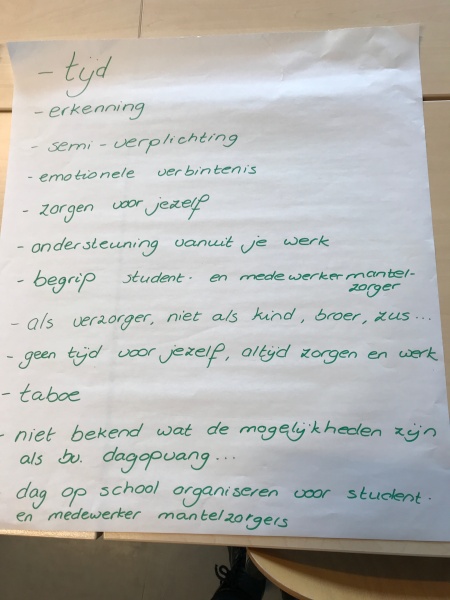 - tijd
- erkenning
- semi-verplichting
- emotionele verbintenis
- zorgen voor jezelf
- ondersteuning vanuit je werk
- begrip student- en medewerker mantel-
zorger
- als verzorger, niet als kind, broer, zus...
- geen tijd voor jezelf, altijd zorgen en werk
- taboe
- niet bekend wat de mogelijkheden zijn
als bv. dagopvang...
dag op school organiseren voor student-
en medewerker mantelzorgers